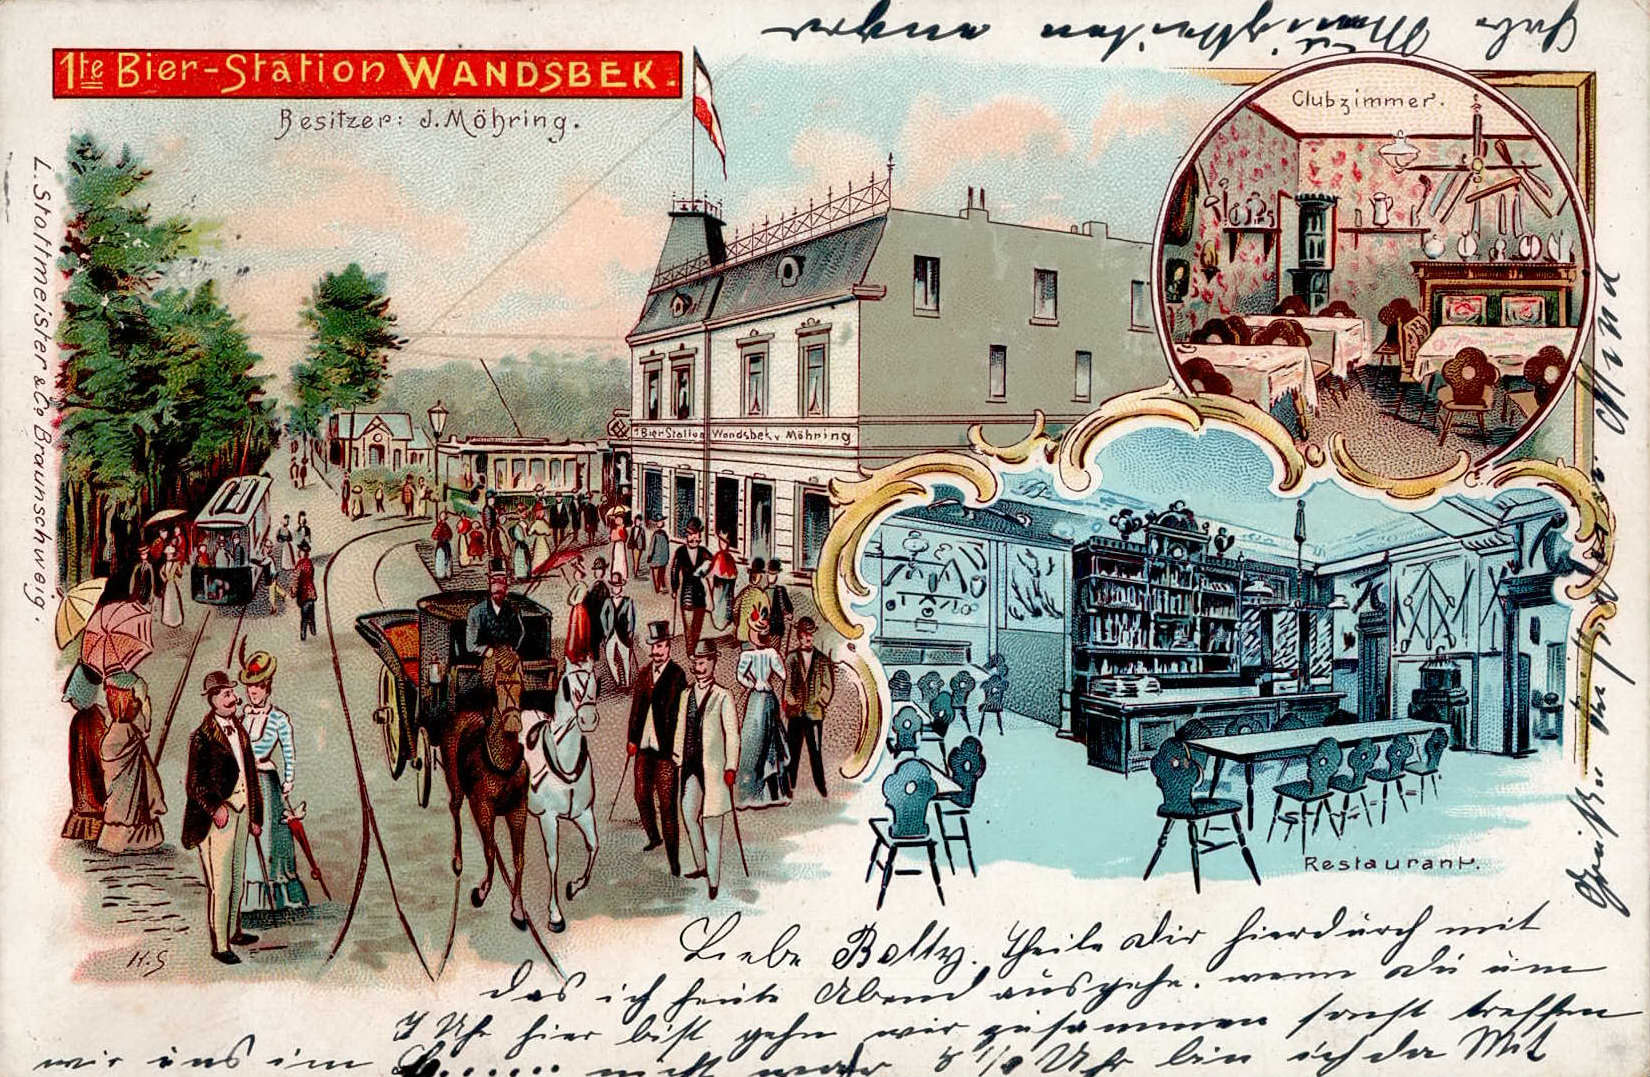 1te Bier-Station WANDSBEK.
Besitzer: J. Möhring.
Clubzimmer.
L. Stottmeister & Co Braunschweig.
1 Bier Station Wandsbek v Möhring
Restaurant.
H.S
Liebe Betty. Theile dir hierdürch mit
das ich heute Abend ausgehe. wenn dü üm
7 Uhr hier bist gehn wir züsammen sonst treffen
wir üns im L...... nicht 8 1/2 Uhr bin ich da Mit
Gruß